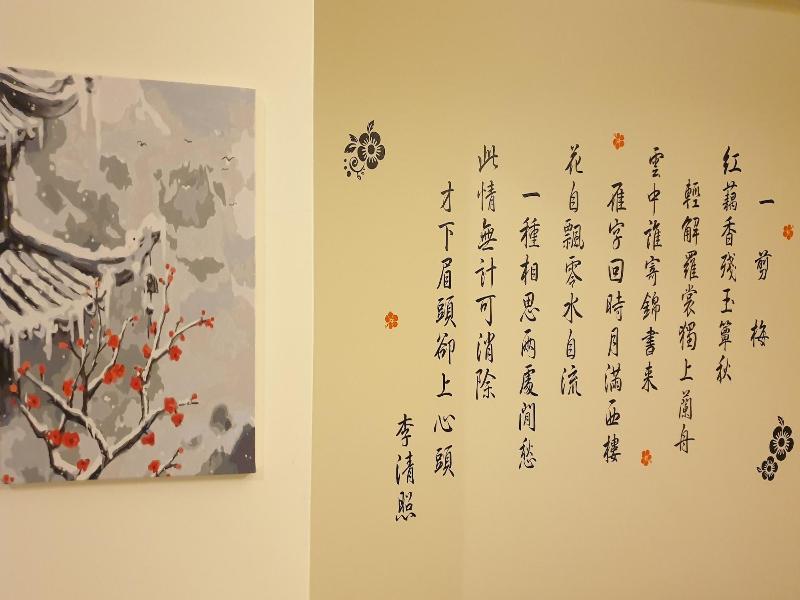 一剪梅
紅藕香殘玉簟秋
輕解羅裳獨上蘭舟
雲中誰寄錦書来
雁字回時月滿西樓
花自飄零水自流
一種相思兩處閒愁
此情無計可消除
才下眉頭卻上心頭
李清照